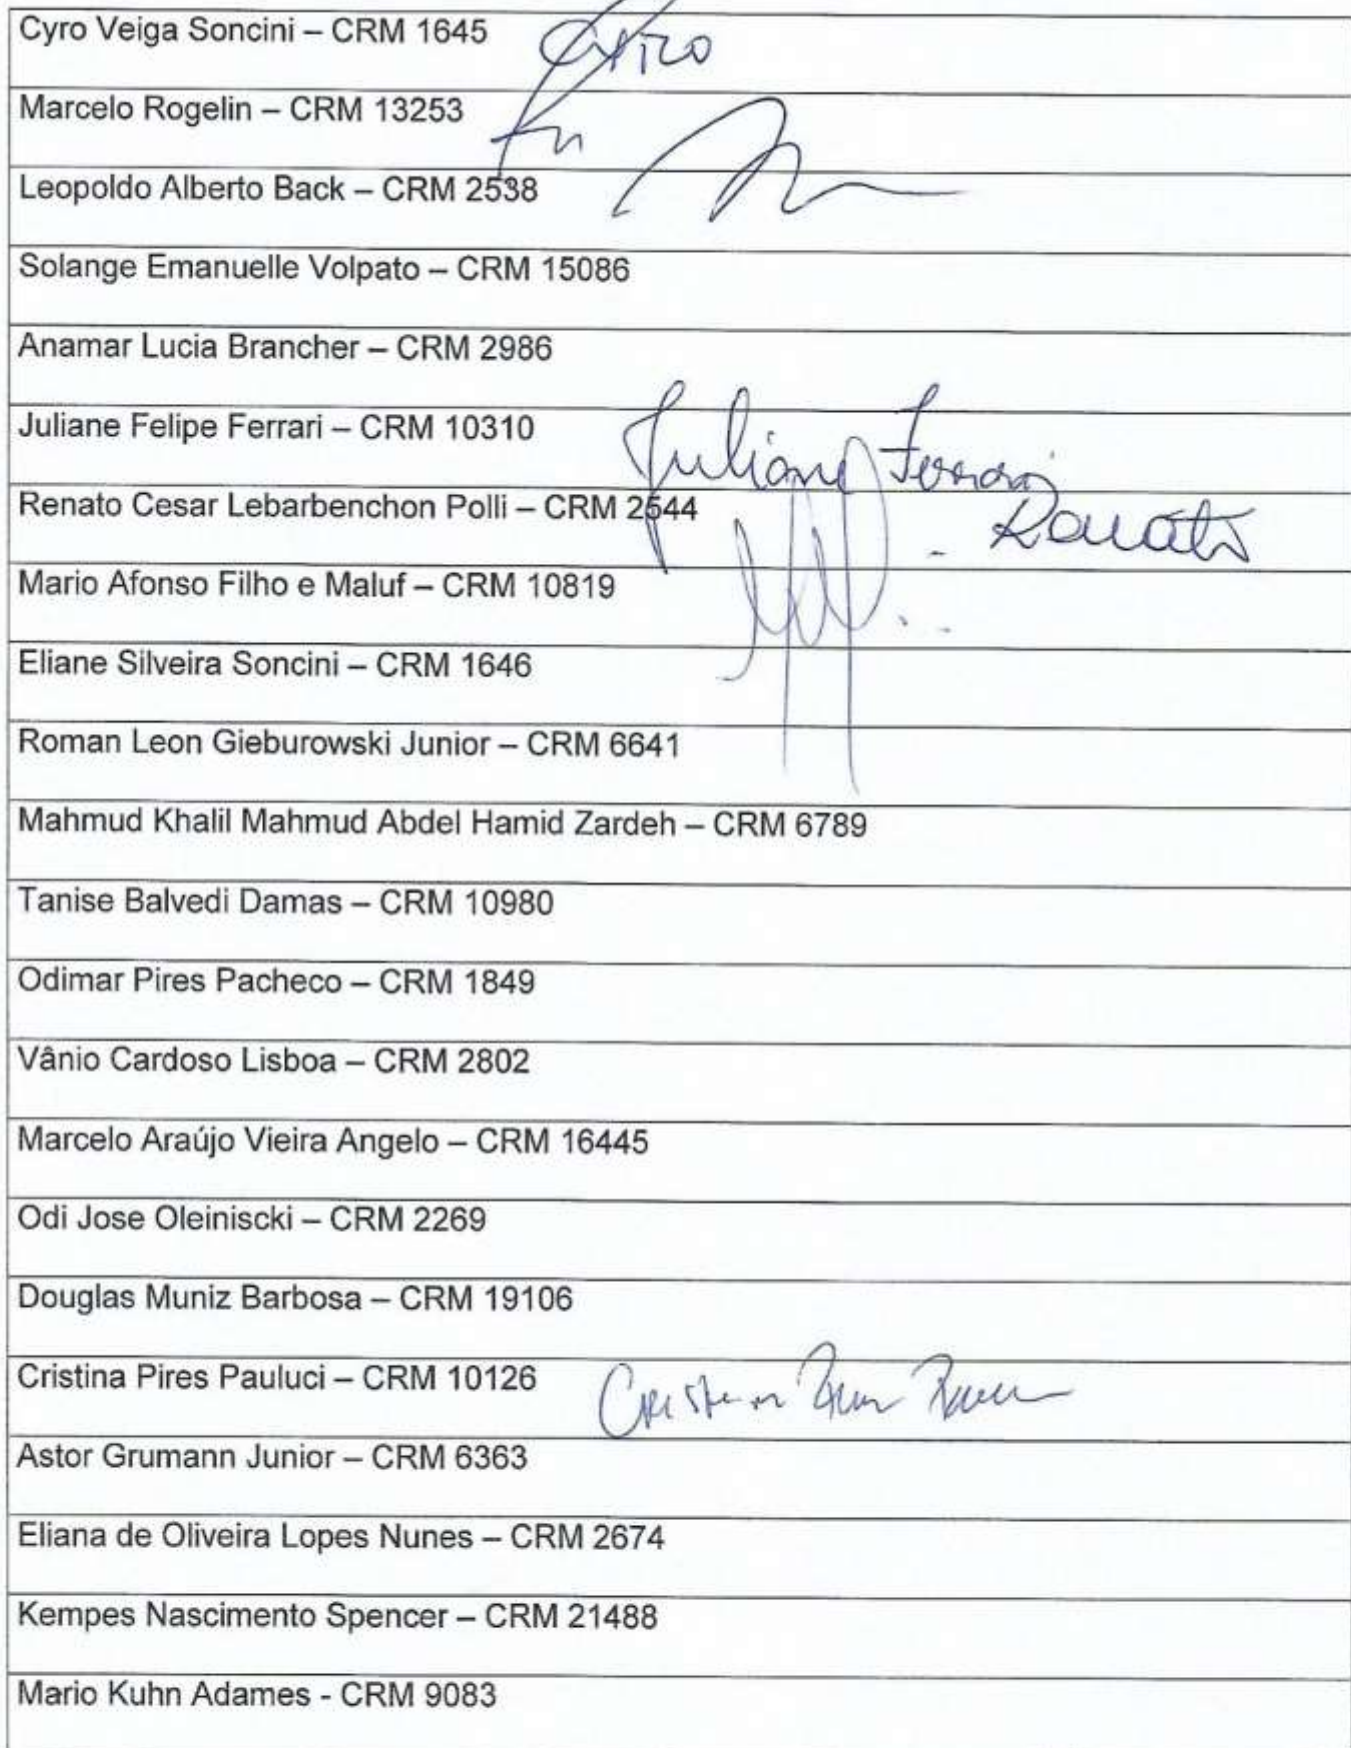 Cyro Veiga Soncini – CRM 1645
Marcelo Rogelin – CRM 13253
Leopoldo Alberto Back – CRM 2538
Solange Emanuelle Volpato – CRM 15086
Anamar Lucia Brancher – CRM 2986
Juliane Felipe Ferrari – CRM 10310 Juliane Ferrari
Renato Cesar Lebarbenchon Polli – CRM 2544 Renato
Mario Afonso Filho e Maluf – CRM 10819
Eliane Silveira Soncini – CRM 1646
Roman Leon Gieburowski Junior – CRM 6641
Mahmud Khalil Mahmud Abdel Hamid Zardeh – CRM 6789
Tanise Balvedi Damas – CRM 10980
Odimar Pires Pacheco – CRM 1849
Vânio Cardoso Lisboa – CRM 2802
Marcelo Araújo Vieira Angelo – CRM 16445
Odi Jose Oleiniscki – CRM 2269
Douglas Muniz Barbosa – CRM 19106
Cristina Pires Pauluci – CRM 10126
Astor Grumann Junior – CRM 6363
Eliana de Oliveira Lopes Nunes – CRM 2674
Kempes Nascimento Spencer – CRM 21488
Mario Kuhn Adames - CRM 9083